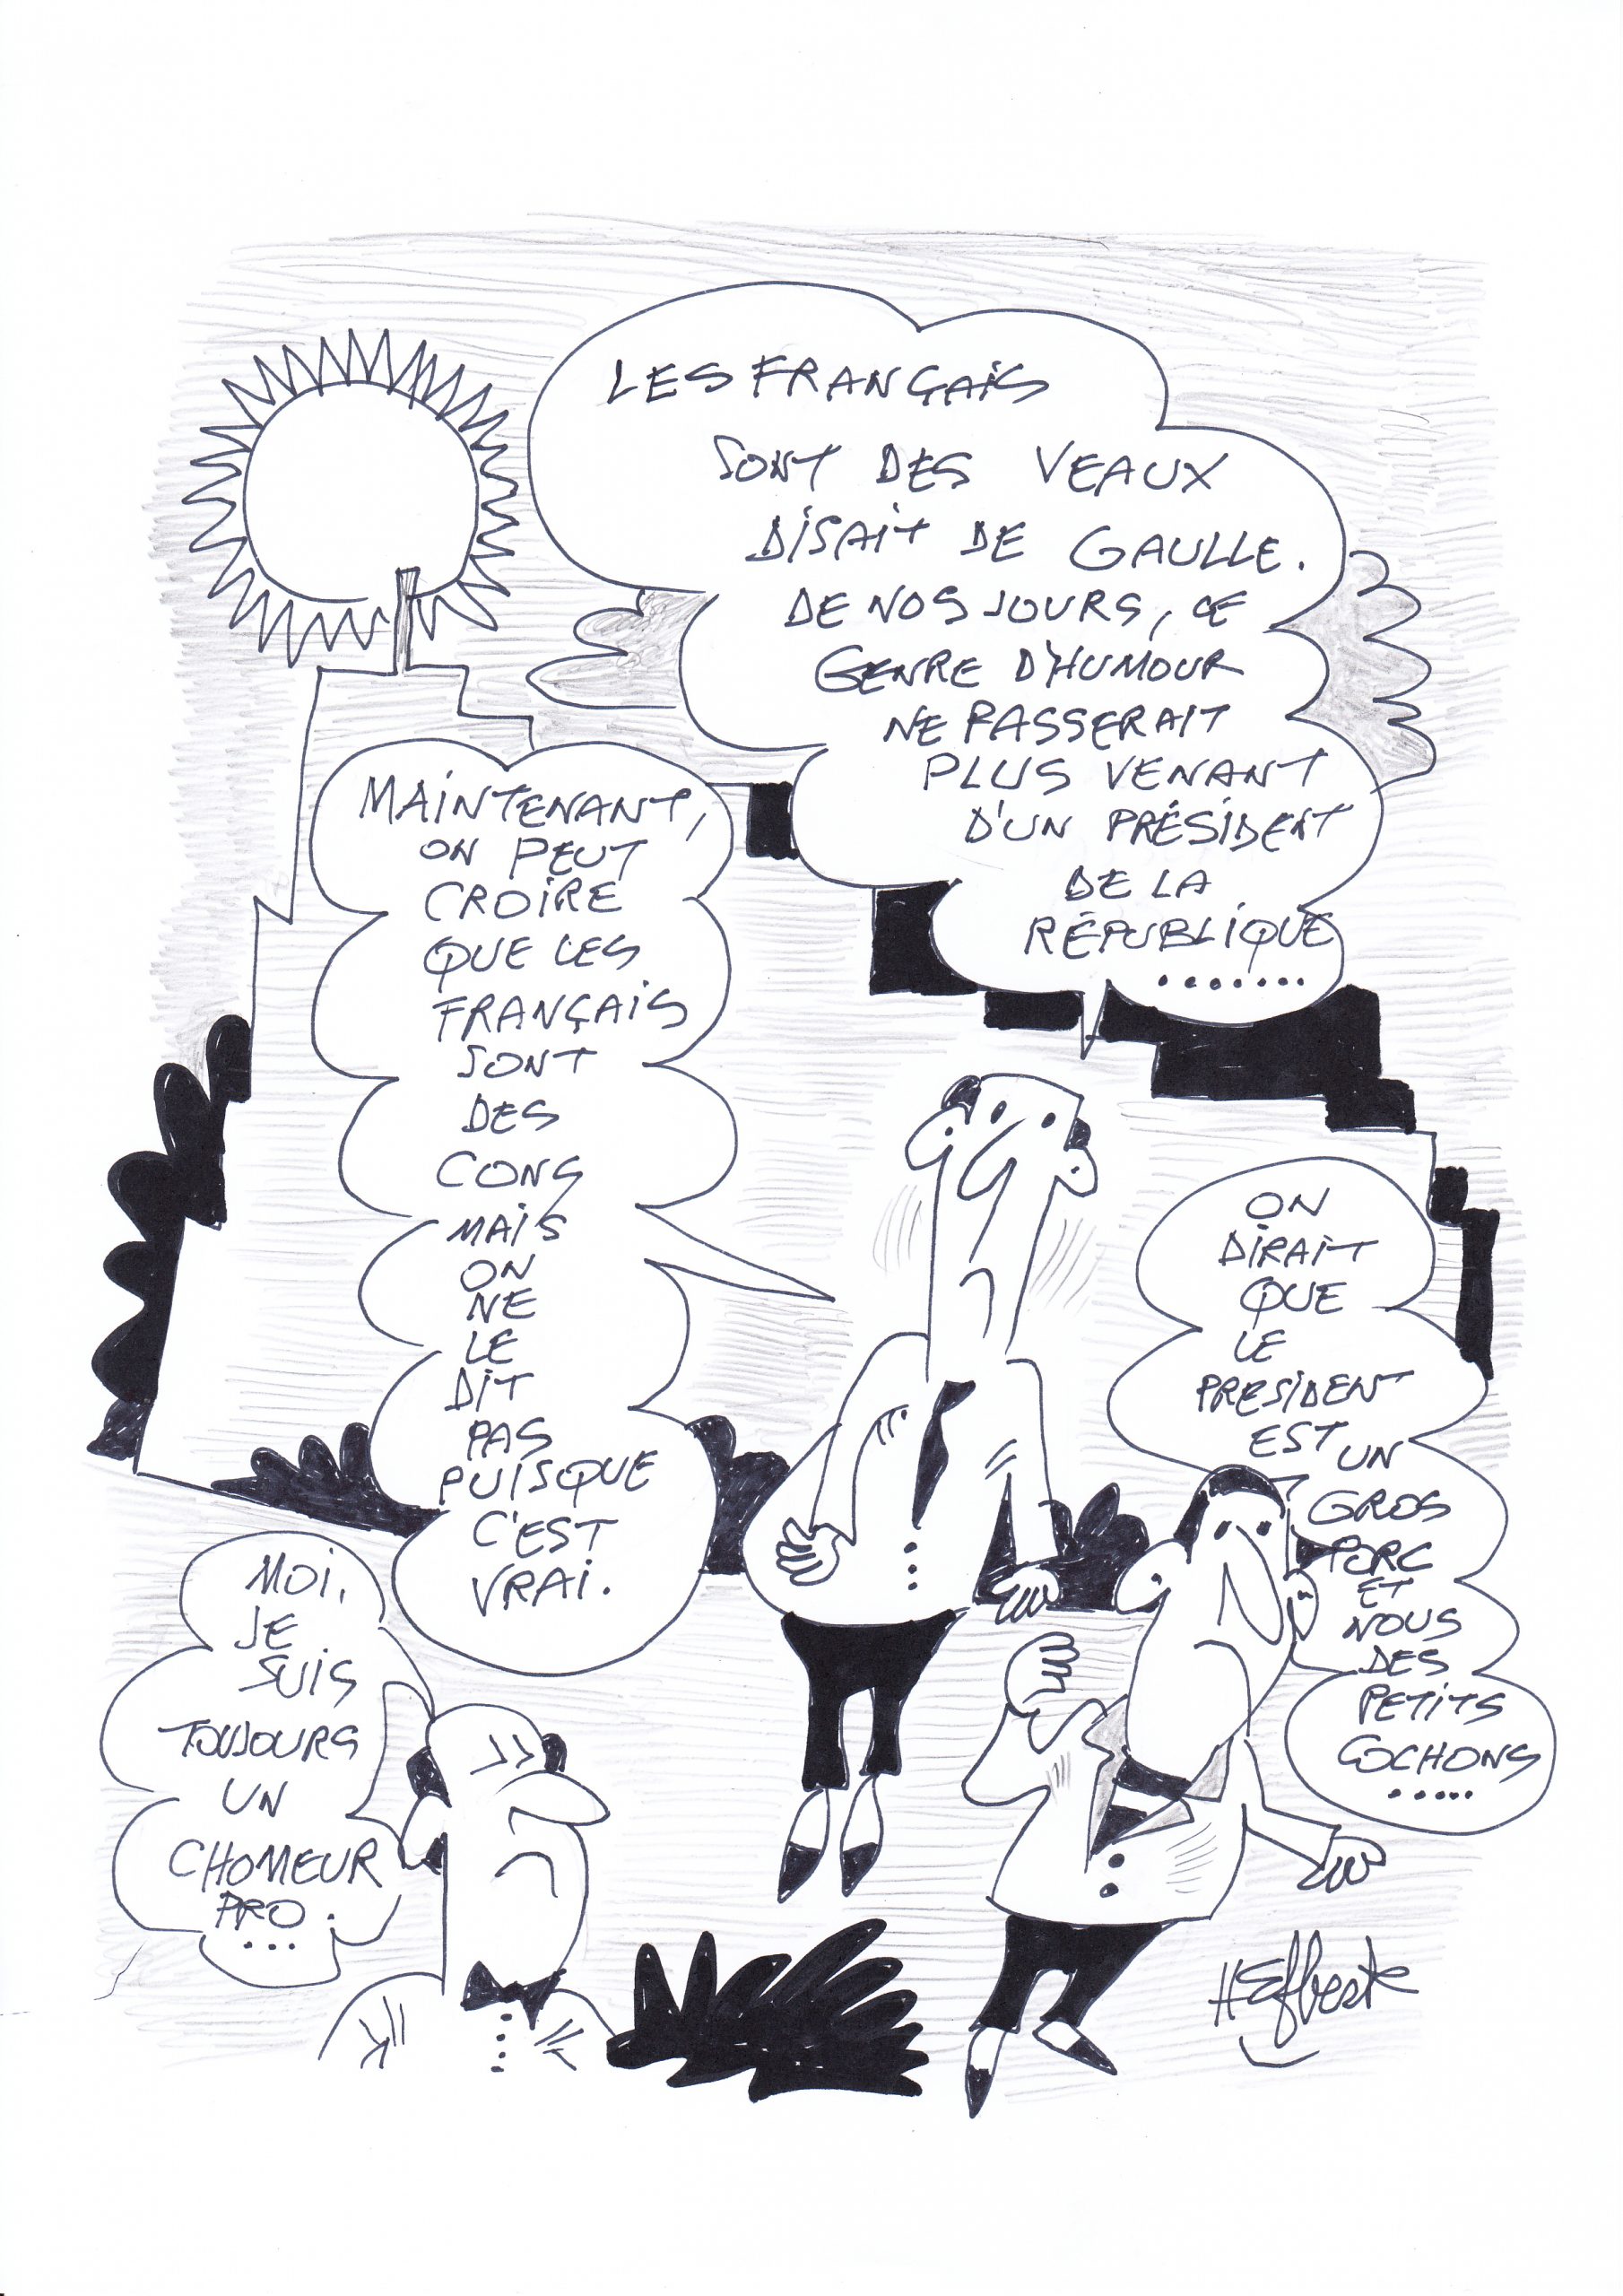 LES FRANÇAiS
SONT DES VEAUX
DiSAiT DE GAULLE.
DE NOS JOURS, CE
GENRE D'HUMOUR
NE PASSERAIT
PLUS VENANT
D'UN PRÉSiDENT
DE LA
RÉPUBLiQUE
.......
MAiNTENANT,
ON PEUT
CROiRE
QUE LES
FRANÇAiS
SONT
DES
CONS
MAiS
ON
NE
LE
DiT
PAS
PUiSQUE
C'EST
VRAi.
ON
DiRAiT
QUE
LE
PRESiDENT
EST UN
GROS
PORC
ET
NOUS
DES
PETiTS
COCHONS
.....
MOi,
JE
SUiS
TOUJOURS
UN
CHOMEUR
PRO.
...